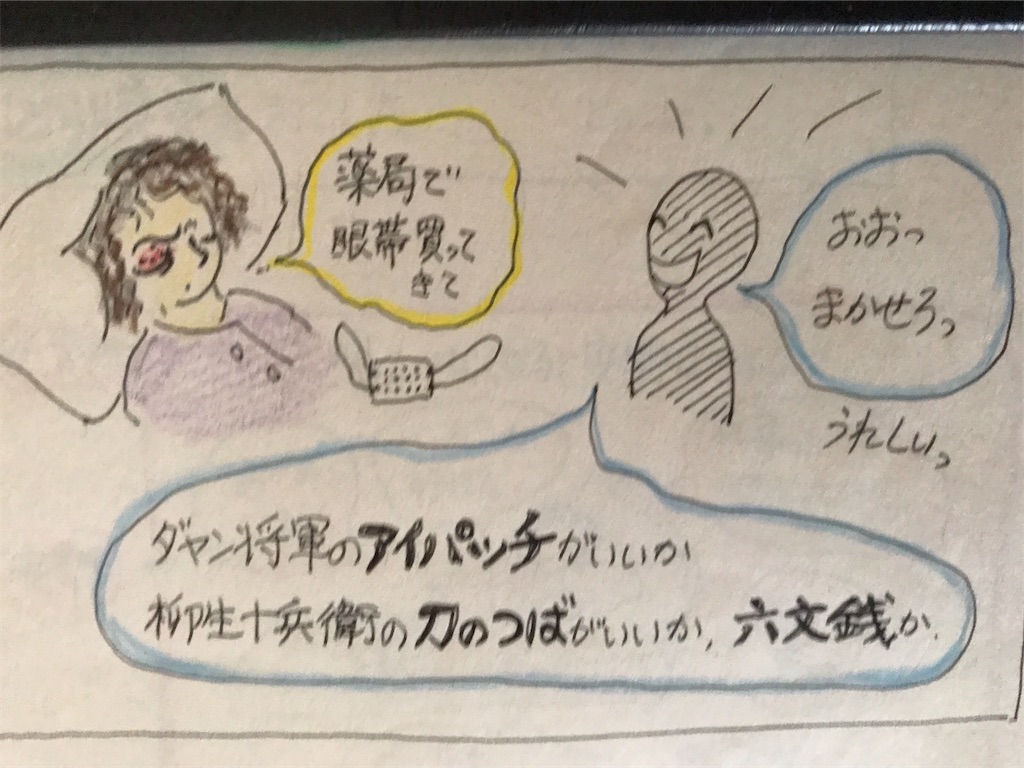 薬局で
眼帯買って
きて
おおっ
まかせろっ
うれしいっ
ダヤン将軍のアイパッチがいいか
柳生十兵衛の刀のつばがいいか、六文銭か、